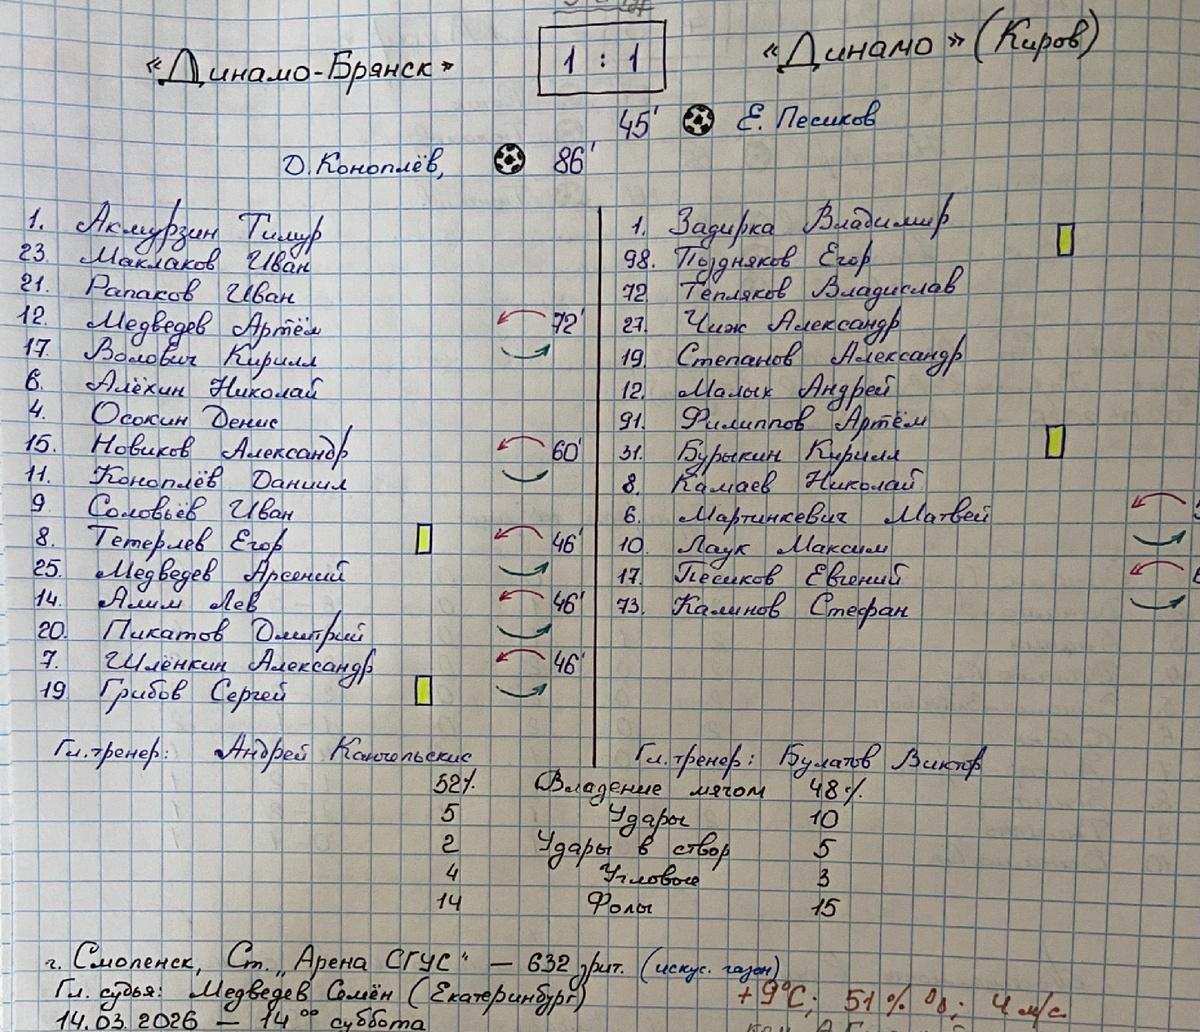 «Динамо-Брянск» 1 : 1 «Динамо» (Киров)
45' Е. Песиков
Д. Коноплёв, 86'
1. Акмурзин Тимур
23. Маклаков Иван
21. Рапаков Иван
12. Медведев Артём 72'
17. Волович Кирилл
6. Алёхин Николай
4. Осокин Денис
15. Новиков Александр 60'
11. Коноплёв Даниил
9. Соловьёв Иван
8. Тетерлев Егор 46'
25. Медведев Арсений
14. Алим Лев 46'
20. Пикатов Дмитрий
7. Шлёнкин Александр 46'
19. Грибов Сергей
Гл. тренер: Андрей
1. Задирка Владимир
98. Поздняков Егор
72. Тепляков Владислав
27. Чиж Александр
19. Степанов Александр
12. Малык Андрей
91. Филиппов Артём
31. Бурыкин Кирилл
8. Камаев Николай
6. Мартинкевич Матвей
10. Лаук Максим
17. Песиков Евгений
73. Калинов Стефан
Гл. тренер: Булатов Виктор
52% Владение мячом 48%
5 Удары 10
2 Удары в створ 5
4 Угловые 3
14 Фолы 15
г. Смоленск, Ст. „Арена СГУС" — 632 зрит. (искус. газон)
Гл. судья: Медведев Семён (Екатеринбург)
+9°C; 51% 4 м/с
14.03.2026 — 14⁰⁰ суббота